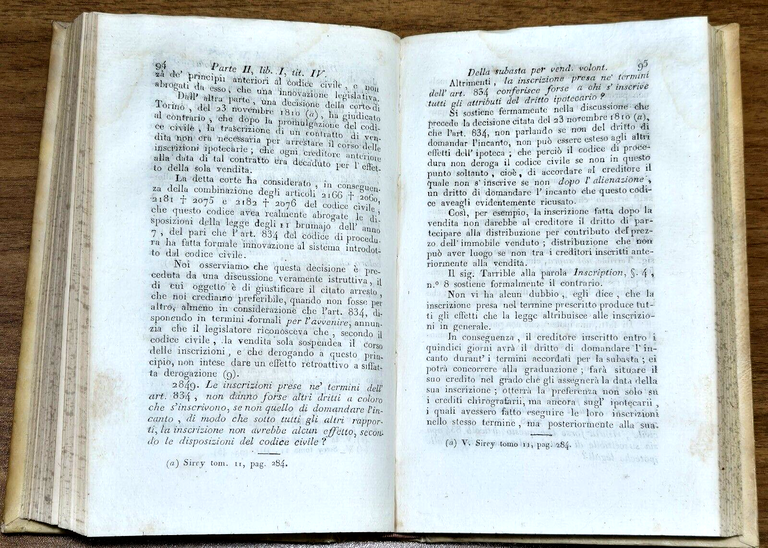 94 Parte II, lib. I, tit. IV
za de' principii anteriori al codice civile, e non
abrogati da esso, che una innovazione legislativa.
Dall' altra parte, una decisione della corte di
Torino, del 23 novembre 1810 (a), ha giudicato
al contrario, che dopo la promulgazione del codi-
ce civile, la trascrizione di un contratto di ven-
dita non era necessaria per arrestare il corso delle
inscrizioni ipotecarie; che ogni creditore anteriore
alla data di tal contratto era decaduto per l'effet-
to della sola vendita.
La detta corte ha considerato, in conseguen-
za della combinazione degli articoli 2166 † 2060,
2181 † 2075 e 2182 † 2076 del codice civile,
che questo codice avea realmente abrogate le di-
sposizioni della legge degli 11 brumajo dell' anno
7, del pari che l'art. 834 del codice di procedu-
ra ha fatta formale innovazione al sistema introdot-
to dal codice civile.
Noi osserviamo che questa decisione è pre-
ceduta da una discussione veramente istruttiva, il
di cui oggetto è di giustificare il citato arresto,
che noi crediamo preferibile, quando non fosse per
altro, almeno in considerazione che l'art. 834, di-
sponendo in termini formali per l'avvenire, annun-
zia che il legislatore riconosceva che, secondo il
codice civile, la vendita sola sospendea il corso
delle inscrizioni, e che derogando a questo prin-
cipio, non intese dare un effetto retroattivo a siffat-
ta derogazione (9).
2849. Le inscrizioni prese ne' termini dell'
art. 834, non danno forse altri dritti a coloro
che s'inscrivono, se non quello di domandare l'in-
canto, di modo che sotto tutti gli altri rappor-
ti, la inscrizione non avrebbe alcun effetto, secon-
do le disposizioni del codice civile?
(a) Sirey tom. 11, pag. 284.
Della subasta per vend. volont. 95
Altrimenti, la inscrizione presa ne' termini
dell' art. 834 conferisce forse a chi s'inscrive
tutti gli attributi del dritto ipotecario?
Si sostiene fermamente nella discussione che
precede la decisione citata del 23 novembre 1810 (a),
che l'art. 834, non parlando se non del dritto di
domandar l'incanto, non può essere esteso agli altri
effetti dell' ipoteca; che perciò il codice di proce-
dura non deroga il codice civile se non in questo
punto soltanto, cioè, di accordare al creditore il
quale non s'inscrive se non dopo l'alienazione,
un dritto di domandare l'incanto che questo codi-
ce aveagli evidentemente ricusato.
Così, per esempio, la inscrizione fatta dopo la
vendita non darebbe al creditore il dritto di par-
tecipare alla distribuzione per contributo del prez-
zo dell'immobile venduto; distribuzione che non
può aver luogo se non tra i creditori inscritti ante-
riormente alla vendita.
Il sig. Tarrible alla parola Inscription, §. 4,
n.° 8 sostiene formalmente il contrario.
Non vi ha alcun dubbio, egli dice, che la
inscrizione presa nel termine prescritto produce tut-
ti gli effetti che la legge attribuisce alle inscrizio-
ni in generale.
In conseguenza, il creditore inscritto entro i
quindici giorni avrà il dritto di domandare l'in-
canto durant' i termini accordati per la subasta; ei
potrà concorrere alla graduazione; farà situare il
suo credito nel grado che gli assegnerà la data della
sua inscrizione; otterrà la preferenza non solo su
i crediti chirografarii, ma ancora sugl' ipotecarii,
i quali avessero fatto eseguire le loro inscrizioni
nello stesso termine, ma posteriormente alla sua.
(a) V. Sirey tomo 11, pag. 284.